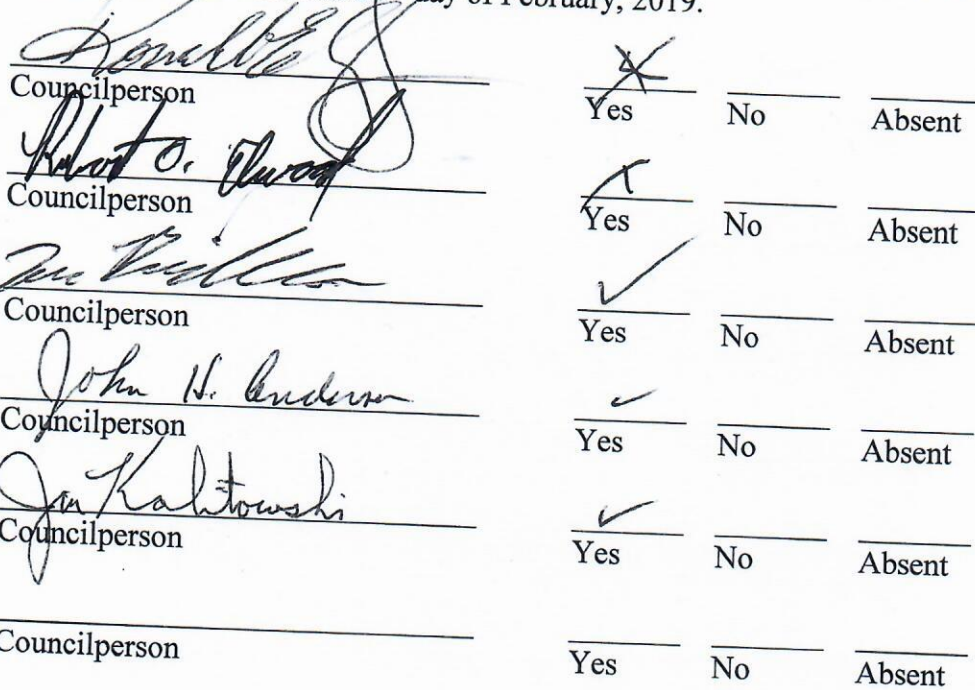 day of February, 2019.
Councilperson Yes No Absent
Robert O.
Councilperson Yes No Absent
Councilperson Yes No Absent
John H. Anderson
Councilperson Yes No Absent
Kalitowski
Councilperson Yes No Absent
Councilperson Yes No Absent